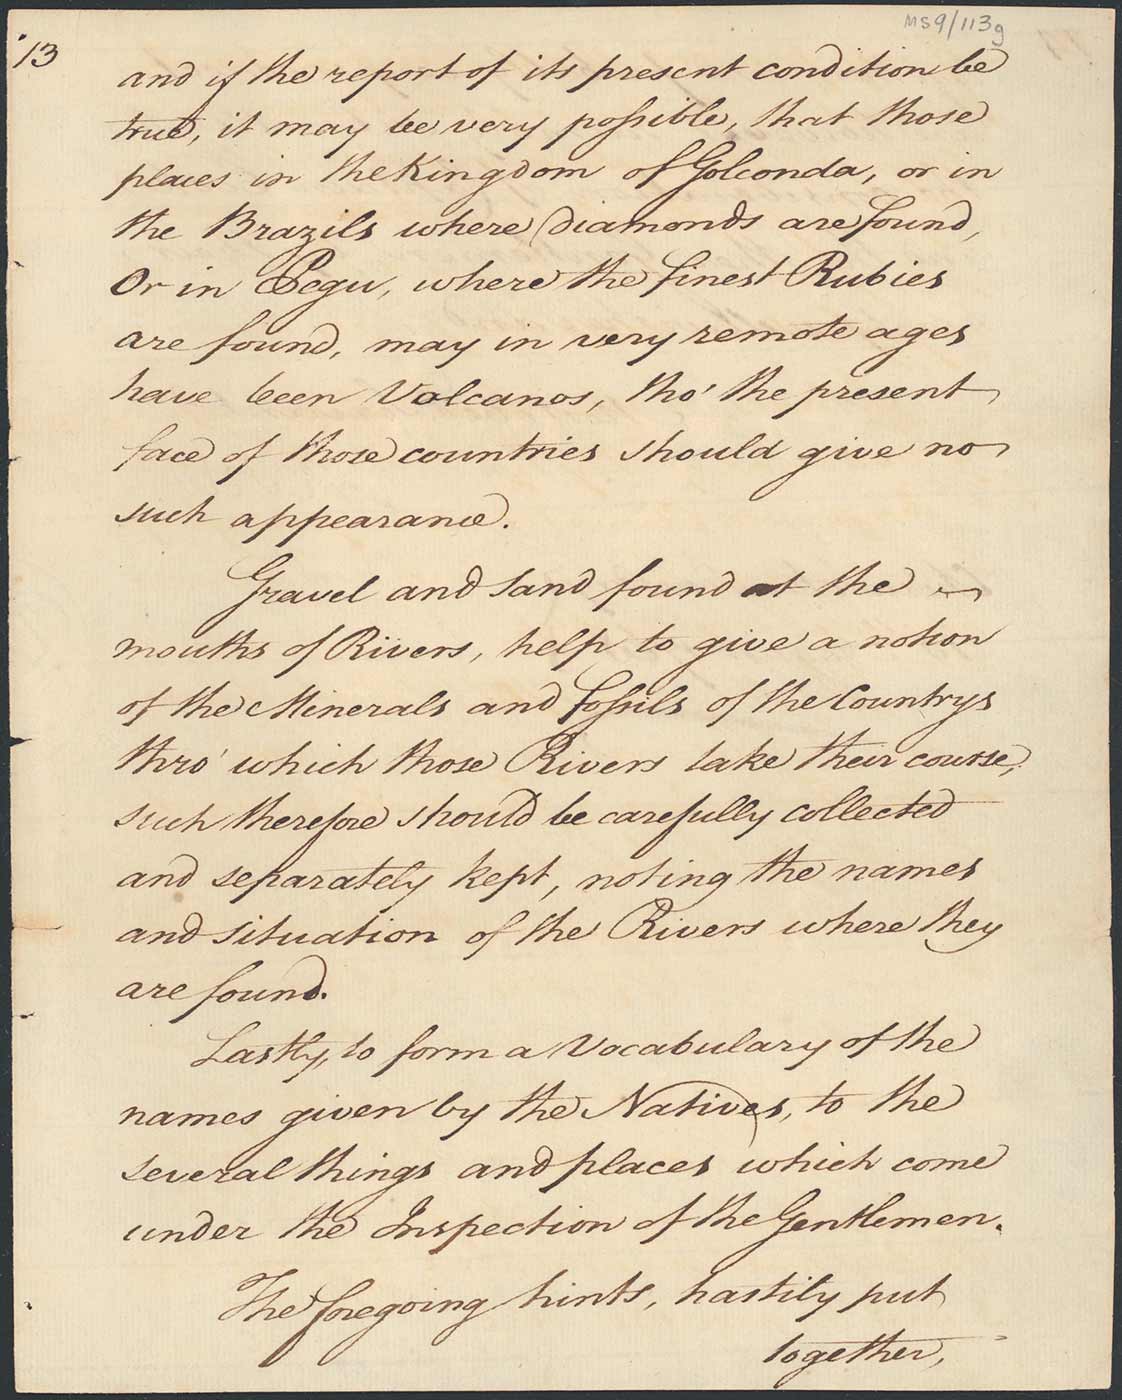 MS9/113g
13
and if the report of its present condition be
true, it may be very possible, that those
places in the Kingdom of Golconda, or in
the Brazils where diamonds are found,
Or in Pegu, where the finest Rubies
are found, may in very remote ages
have been Volcanos, tho' the present
face of those countries should give no
such appearance.
Gravel and Sand found at the
mouths of Rivers, help to give a notion
of the Minerals and fossils of the Countrys
thro' which those Rivers take their course,
such therefore should be carefully collected
and separately kept, noting the names
and situation of the Rivers where they
are found.
Lastly, to form a Vocabulary of the
names given by the Natives, to the
several things and places which come
under the Inspection of the Gentlemen.
The foregoing hints, hastily put
together,